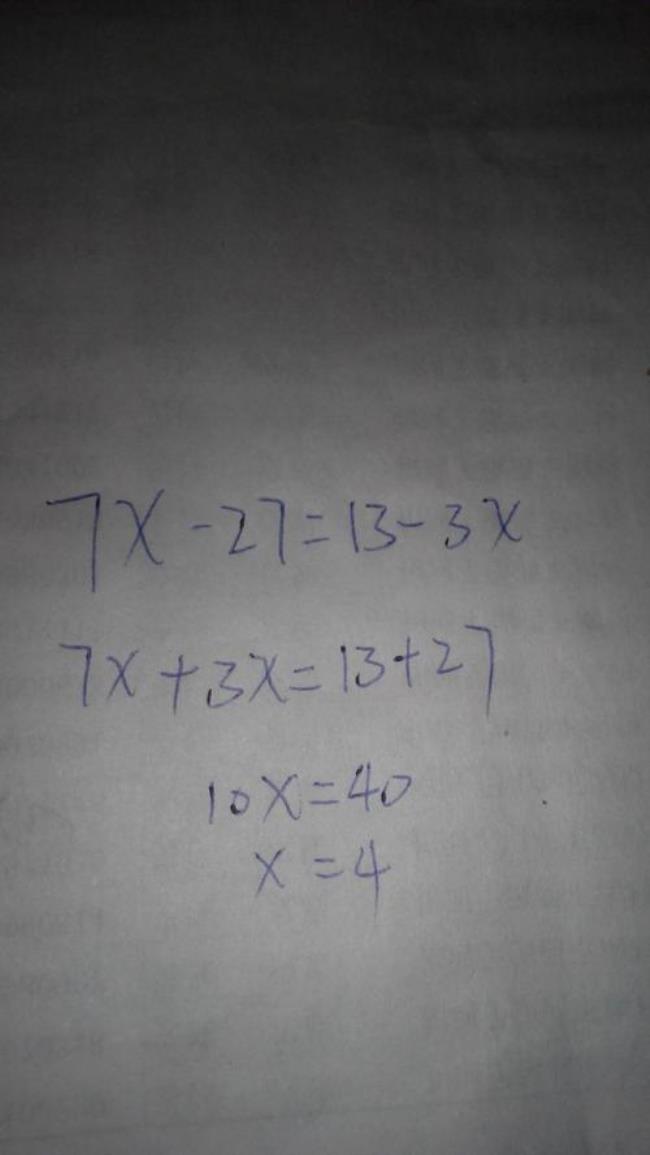 7x-27=13-3x
7x+3x=13+27
10x=40
x=4